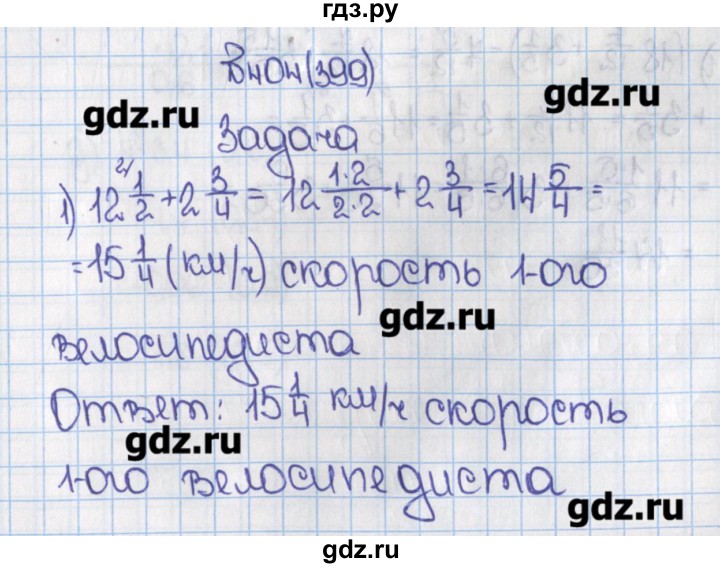 гдз.ру
В404(399)
gdz.ru
gdz.ru
Задача
1) 12 2/ 1/2 + 2 3/4 = 12 1·2/2·2 + 2 3/4 = 14 5/4 =
= 15 1/4 (км/ч) скорость 1-ого
gdz.ru
велосипедиста
Ответ: 15 1/4 км/ч скорость
gdz.ru
1-ого велосипедиста
gdz.ru
gdz.ru